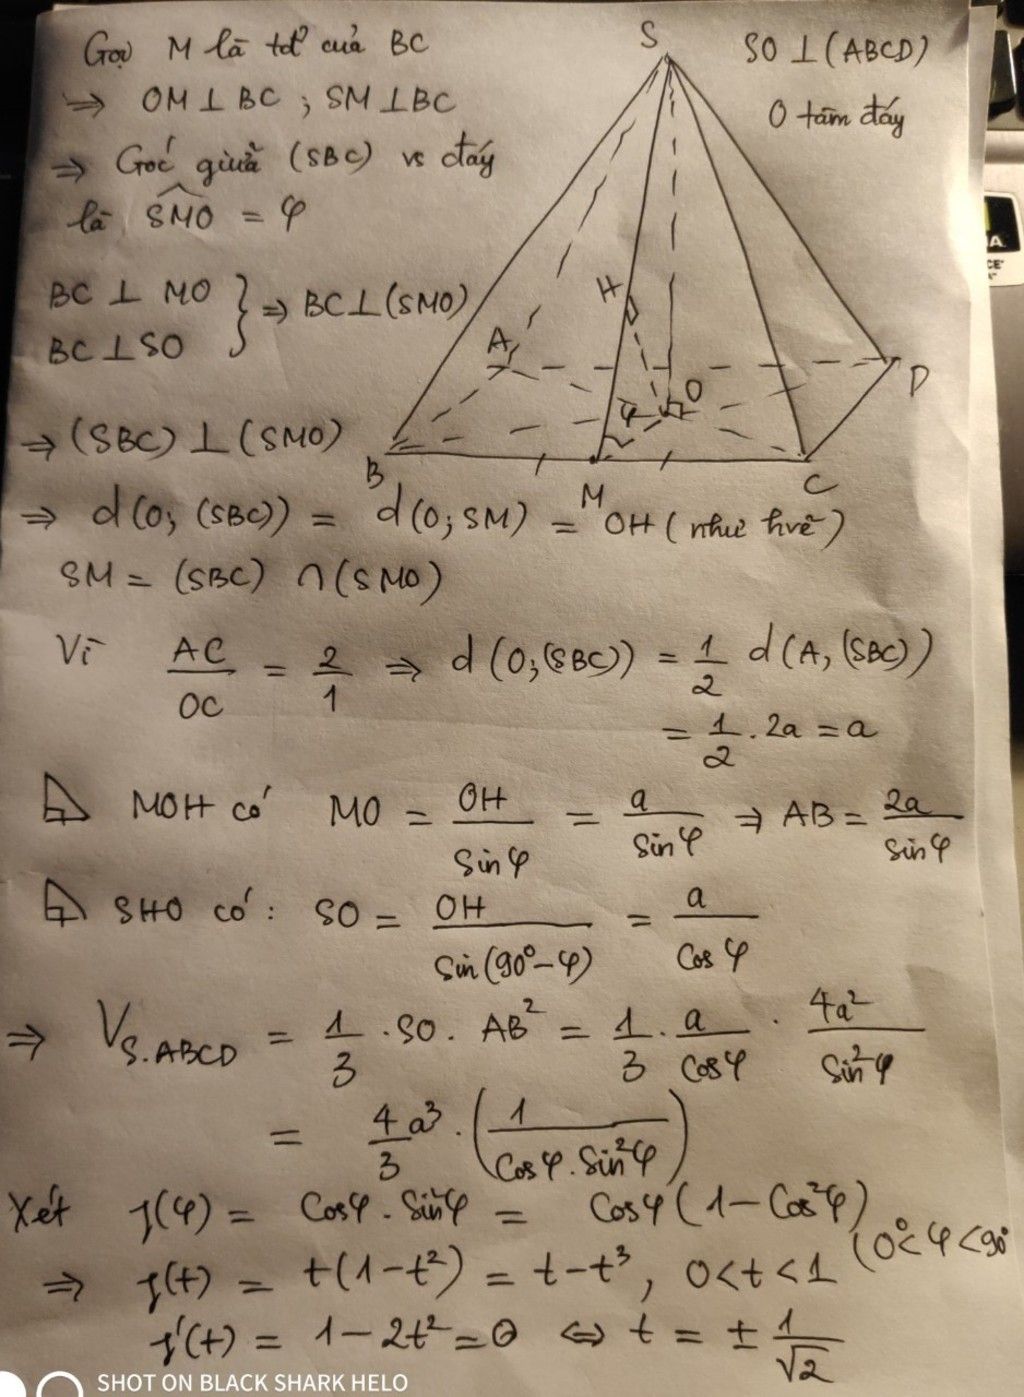 Gọi M là tđ của BC
⇒ OM ⊥ BC ; SM ⊥ BC
⇒ Góc giữa (SBC) vs đáy
là SMO = φ
BC ⊥ MO
BC ⊥ SO } ⇒ BC ⊥ (SMO)
⇒ (SBC) ⊥ (SMO)
S
SO ⊥ (ABCD)
O tâm đáy
H
A
D
O
φ
B
M
C
⇒ d(O; (SBC)) = d(O; SM) = OH (như hvẽ)
SM = (SBC) ∩ (SMO)
Vì AC/OC = 2/1 ⇒ d(O;(SBC)) = 1/2 d(A, (SBC))
= 1/2 . 2a = a
MOH có MO = OH/Sinφ = a/Sinφ ⇒ AB = 2a/Sinφ
SHO có : SO = OH/Sin(90°-φ) = a/Cosφ
⇒ V S.ABCD = 1/3 · SO . AB² = 1/3 . a/Cosφ . 4a²/Sin²φ
= 4/3 a³ . (1/Cosφ . Sin²φ)
Xét f(φ) = Cosφ . Sin²φ = Cosφ (1 - Cos²φ)
(0° < φ < 90°
⇒ f(t) = t(1-t²) = t-t³, 0<t<1
f'(t) = 1 - 2t² = 0 ⇔ t = ± 1/√2
SHOT ON BLACK SHARK HELO